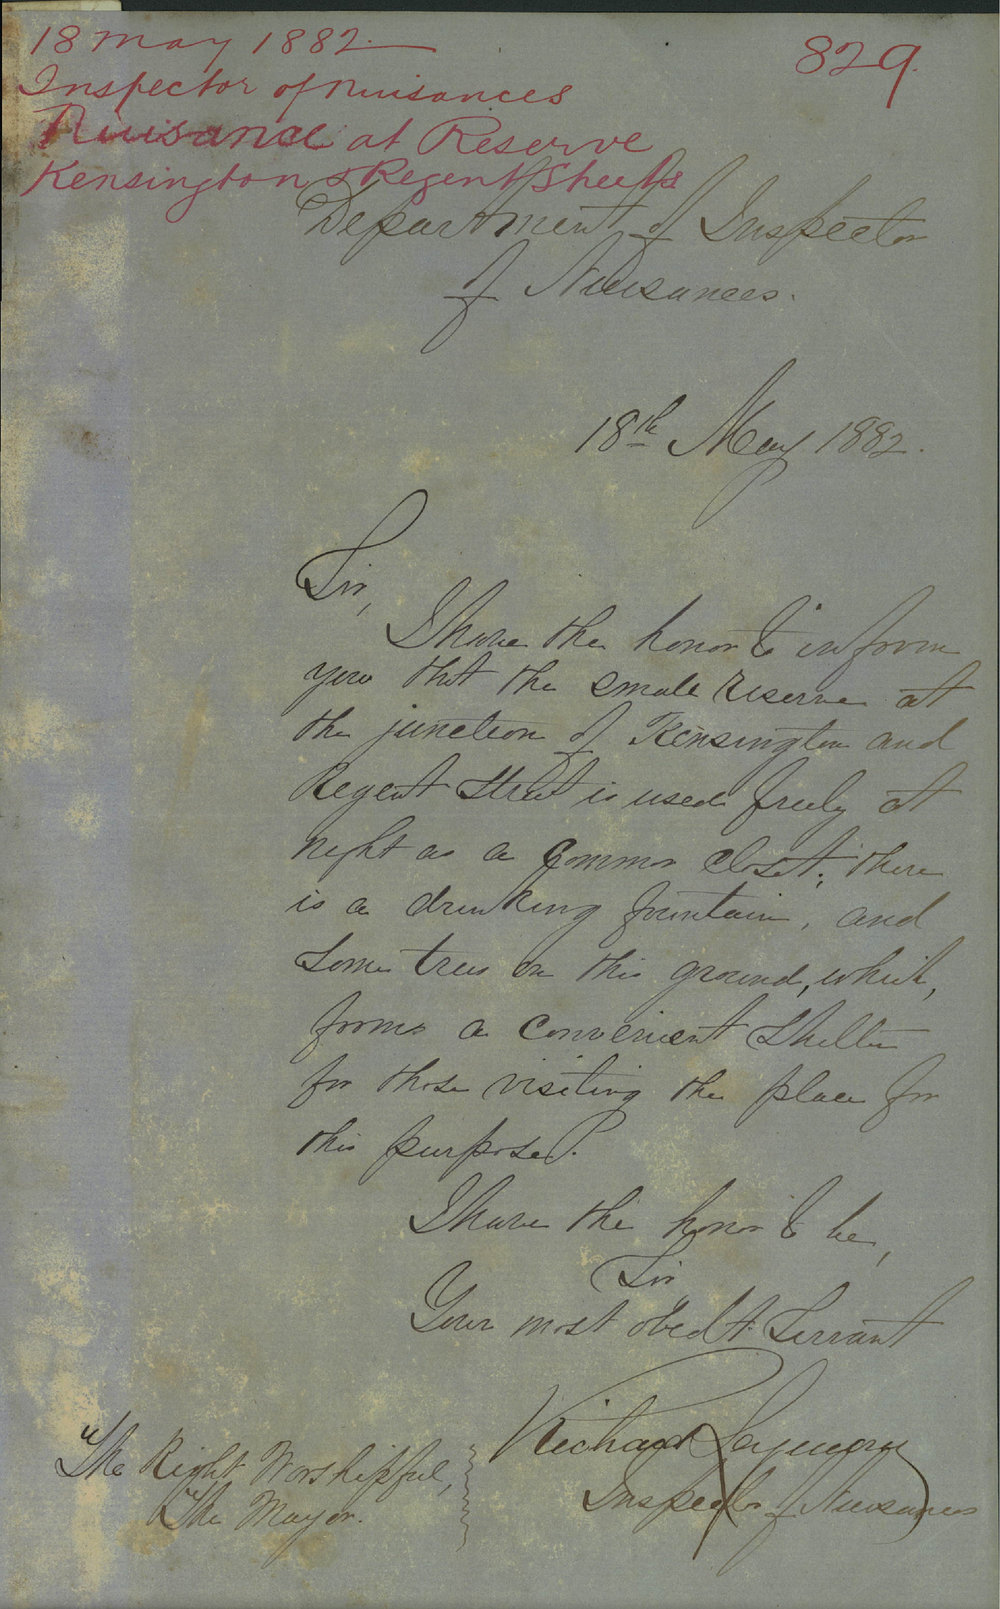 18 May 1882
829.
Inspector of Nuisances
Nuisance at Reserve
Kensington & Regent Streets
Department of Inspector
of Nuisances.
18th May 1882.
Sir,
I have the honor to inform
you that the small reserve at
the junction of Kensington and
Regent Street is used freely at
night as a common closet; there
is a drinking fountain, and
some trees on this ground, which,
forms a convenient shelter
for those visiting the place for
this purpose.
I have the honor to be,
Sir,
Your most obedt Servant
Richard Seymour
Inspector of Nuisances
The Right Worshipful,
The Mayor.